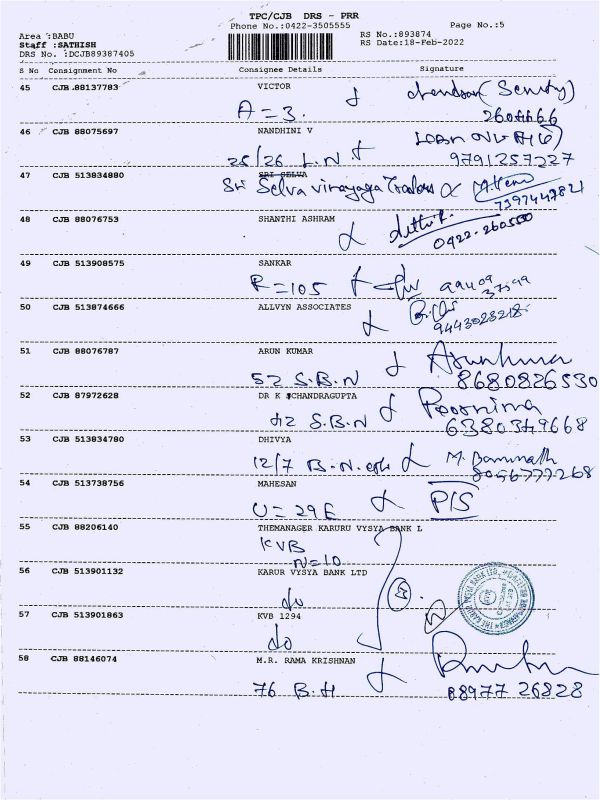 TPC/CJB DRS - PRR
Phone No.:0422-3505555
Page No.:5
Area :BABU
RS No.:893874
Staff :SATHISH
RS Date:18-Feb-2022
DRS No. :DCJB89387405
S No Consignment No Consignee Details Signature
45 CJB 88137783 VICTOR
A = 3.
46 CJB 88075697 NANDHINI V
25/26 L.N 9791257227
47 CJB 513834880 SRI SELVA
Sri Selva vinayaga Traders
7397447821
48 CJB 88076753 SHANTHI ASHRAM
0422-260550
49 CJB 513908575 SANKAR
R = 105
50 CJB 513874666 ALLVYN ASSOCIATES
9443023218
51 CJB 88076787 ARUN KUMAR
52 S.B.N 8680826530
52 CJB 87972628 DR K CHANDRAGUPTA
42 S.B.N Poornima
6380349668
53 CJB 513834780 DHIVYA
12/7 B.N.
8056777268
54 CJB 513738756 MAHESAN
U = 29E P/S
55 CJB 88206140 THEMANAGER KARURU VYSYA BANK L
KVB
N=10
56 CJB 513901132 KARUR VYSYA BANK LTD
do
57 CJB 513901863 KVB 1294
do
58 CJB 88146074 M.R. RAMA KRISHNAN
76 B.H 88977 26828